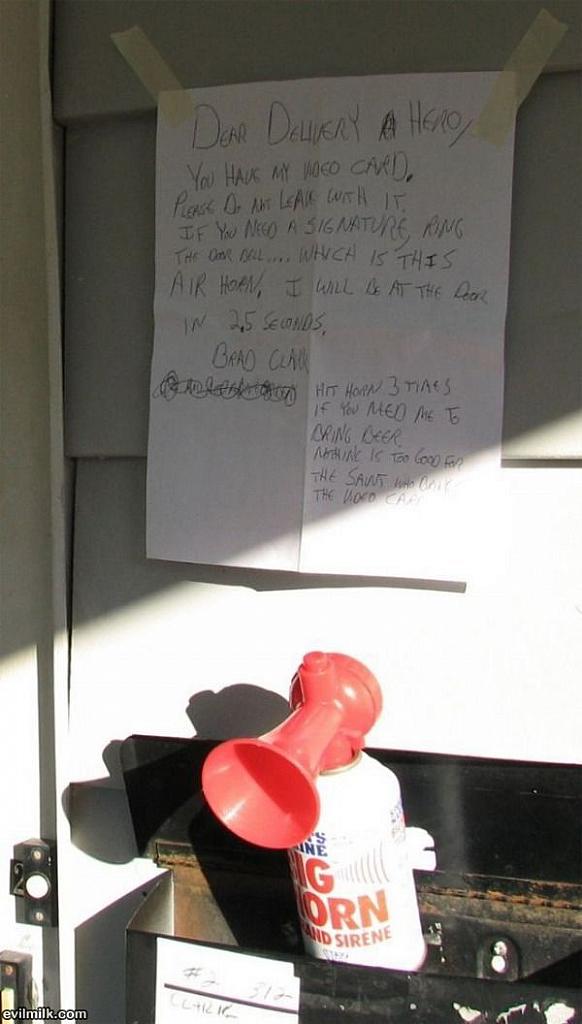 DEAR DELIVERY HERO,
YOU HAVE MY VIDEO CARD.
PLEASE DO NOT LEAVE WITH IT.
IF YOU NEED A SIGNATURE, RING
THE DOOR BELL.... WHICH IS THIS
AIR HORN. I WILL BE AT THE DOOR
IN 2.5 SECONDS.
BRAD CLARK
HIT HORN 3 TIMES
IF YOU NEED ME TO
BRING BEER.
NOTHING IS TOO GOOD FOR
THE SAINT WHO
THE VIDEO CARD
INE
IG
ORN
AND SIRENE
#2 312
CLARK
2
evilmilk.com